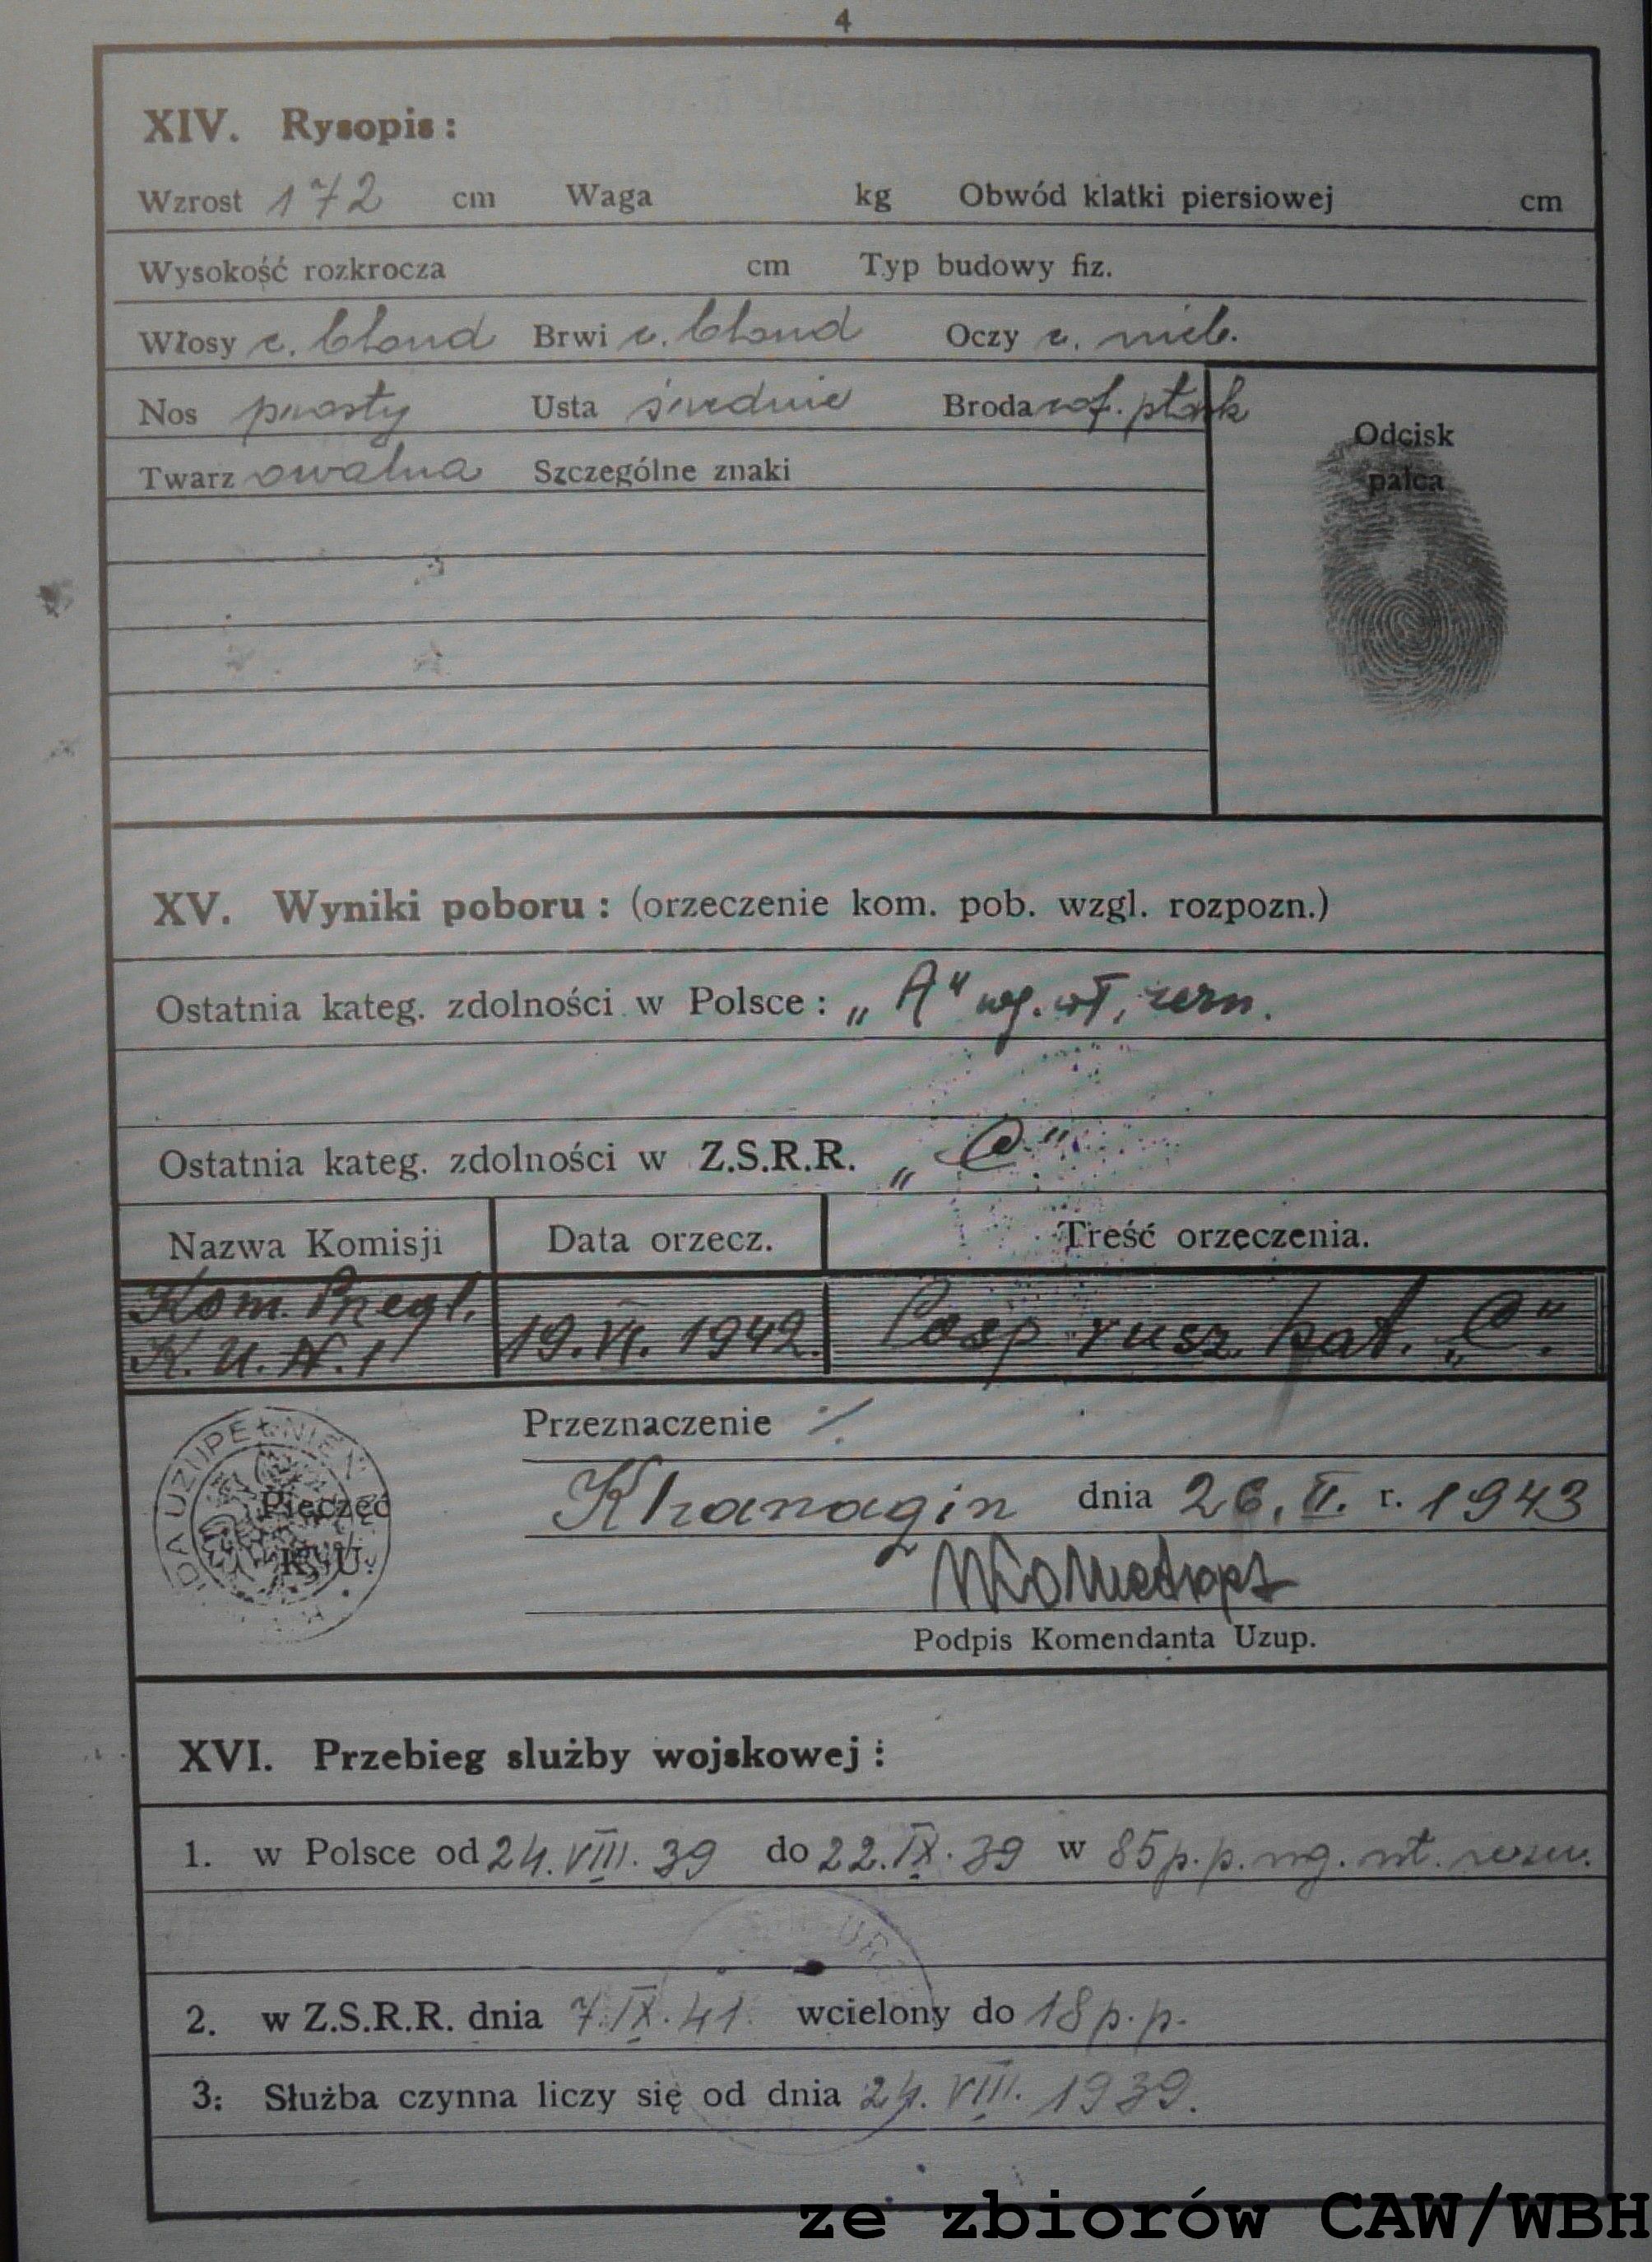 4
XIV. Rysopis:
Wzrost 172 cm Waga kg Obwód klatki piersiowej cm
Wysokość rozkrocza cm Typ budowy fiz.
Włosy c. blond Brwi c. blond Oczy c. nieb.
Nos prosty Usta średnie Broda
Odcisk
palca
Twarz owalna Szczególne znaki
XV. Wyniki poboru: (orzeczenie kom. pob. wzgl. rozpozn.)
Ostatnia kateg. zdolności w Polsce: „A" wg. wł. zezn.
Ostatnia kateg. zdolności w Z.S.R.R. „C"
Nazwa Komisji Data orzecz. Treść orzeczenia.
Kom. Przegl. 19.VI. 1942. Posp. rusz kat. „C".
K. U. N. 1
Przeznaczenie ./.
DA UZUPEŁNIEŃ
Pieczęć
K. U.
Khanaqin dnia 26. II. r. 1943
Podpis Komendanta Uzup.
XVI. Przebieg służby wojskowej:
1. w Polsce od 24.VIII.39 do 22.IX.39 w 85 p.p. wg. wł. zezn.
2. w Z.S.R.R. dnia 7.IX.41. wcielony do 18 p.p.
3: Służba czynna liczy się od dnia 24. VIII. 1939.
ze zbiorów CAW/WBH